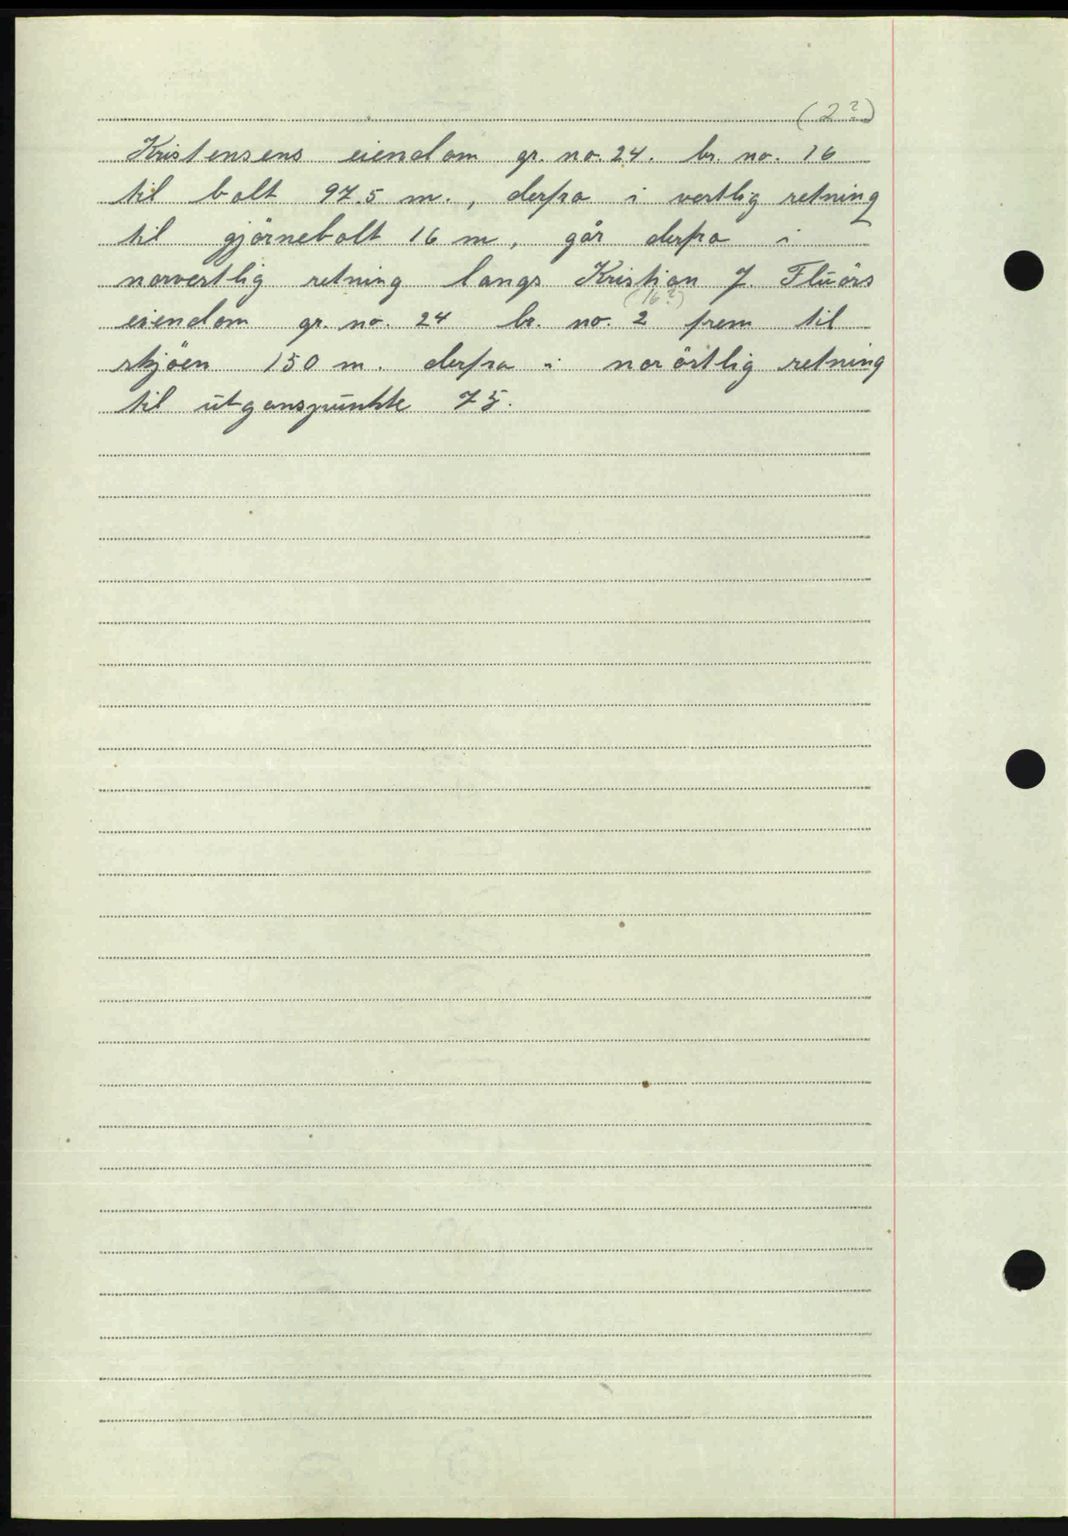 (2?)
Kristensens eiendom gr. no. 24. br. no. 16
til bolt 97.5 m., derfra i vestlig retning
til gjörnebolt 16 m, går derfra i
norvestlig retning langs Kristian J. Fluörs
(16?)
eiendom gr. no. 24 br. no. 2 frem til
skjöen 150 m. derfra i norörtlig retning
til utganspunkte 75.